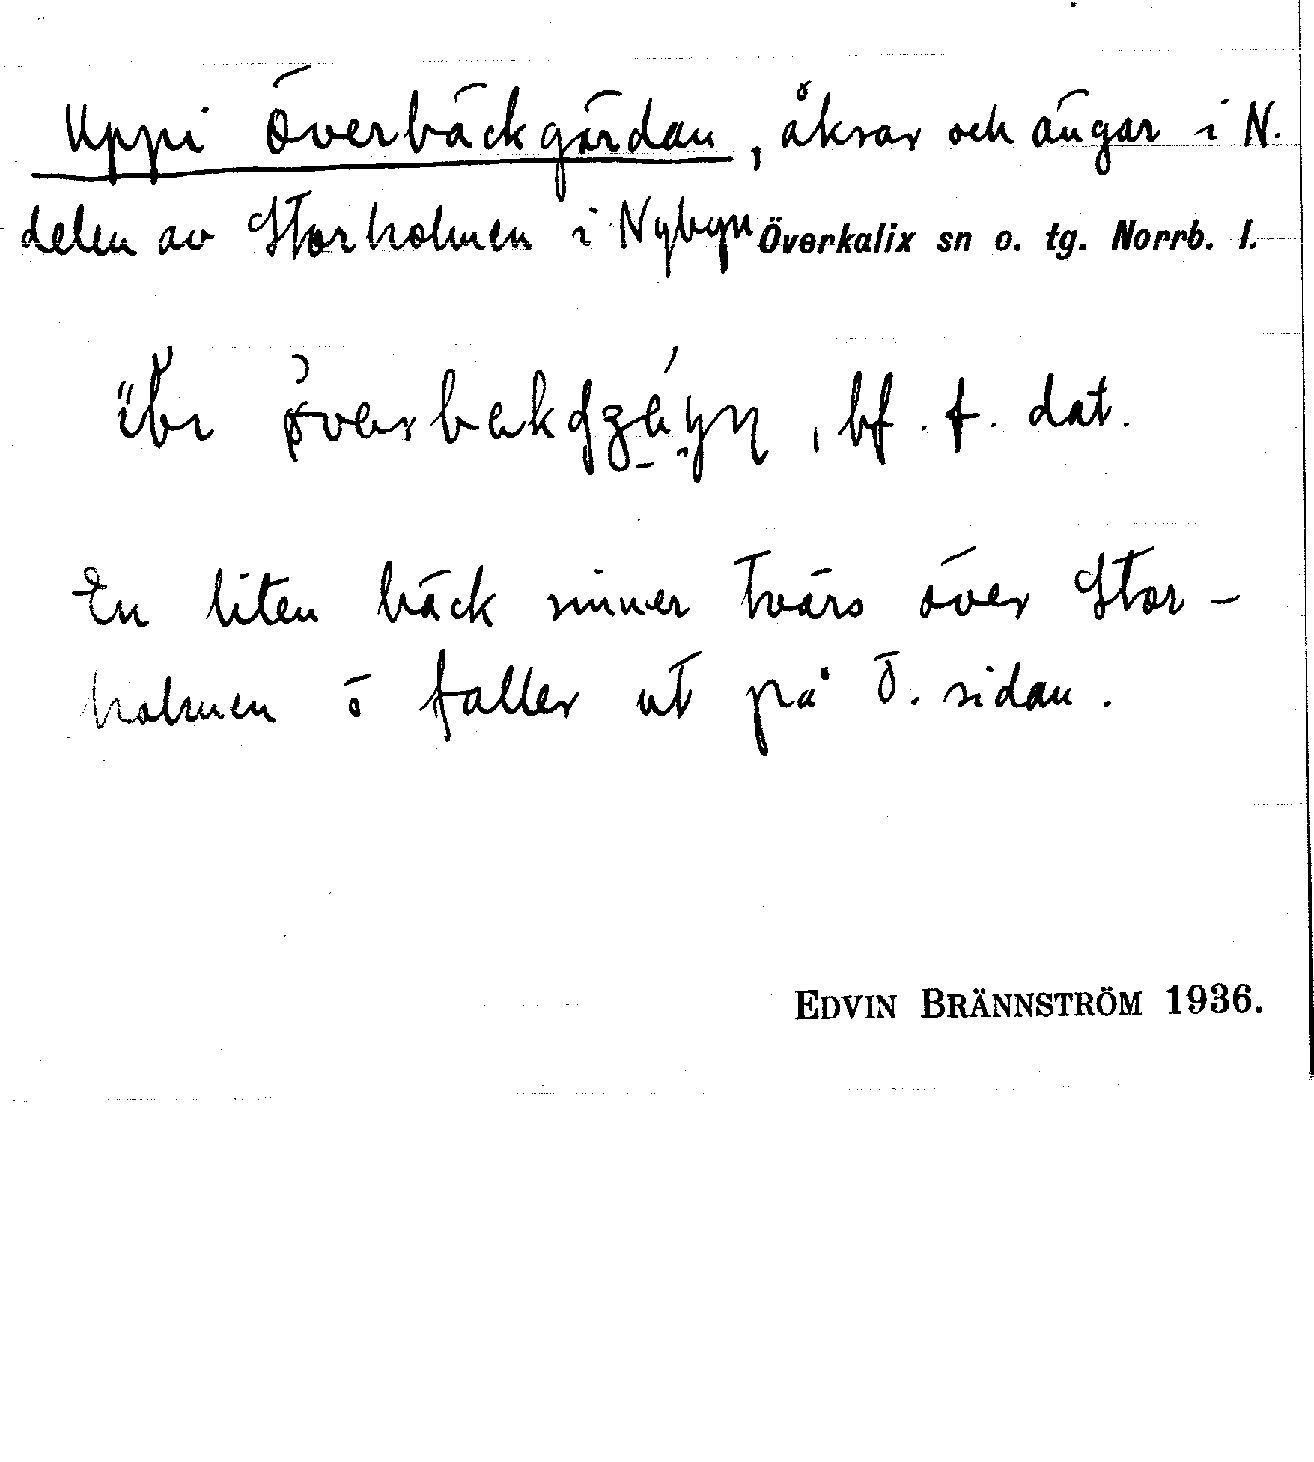 Uppi Överbäckgärdan, åkrar och ängar i N.
delen av Storholmen i Nybyn Överkalix sn o. tg. Norrb. l.
, bf. f. dat.
En liten bäck rinner tvärs över Stor-
holmen ö faller ut på Ö. sidan.
EDVIN BRÄNNSTRÖM 1936.